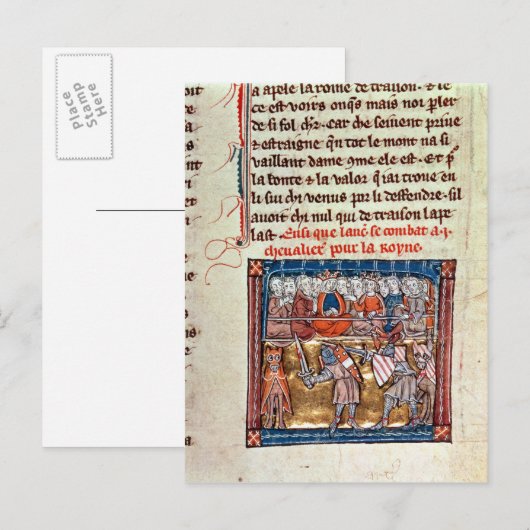 Place
Stamp
Here
a apele la roine de traison . & le
ce est voirs onq̃s mais noi pler
de si fol ch'r . Car che seiuent priue
& estraigne . qͥ tot le mont na si
uaillant dame 9me ele est . Et p̲
la bonte & la ualor q̃ iai troue en
li sui chi uenus por li deffendre . sil
auoit chi nul qui de traison lape
last . Ensi que lanc̃ . se combat a . j .
cheualier pour la Royne .